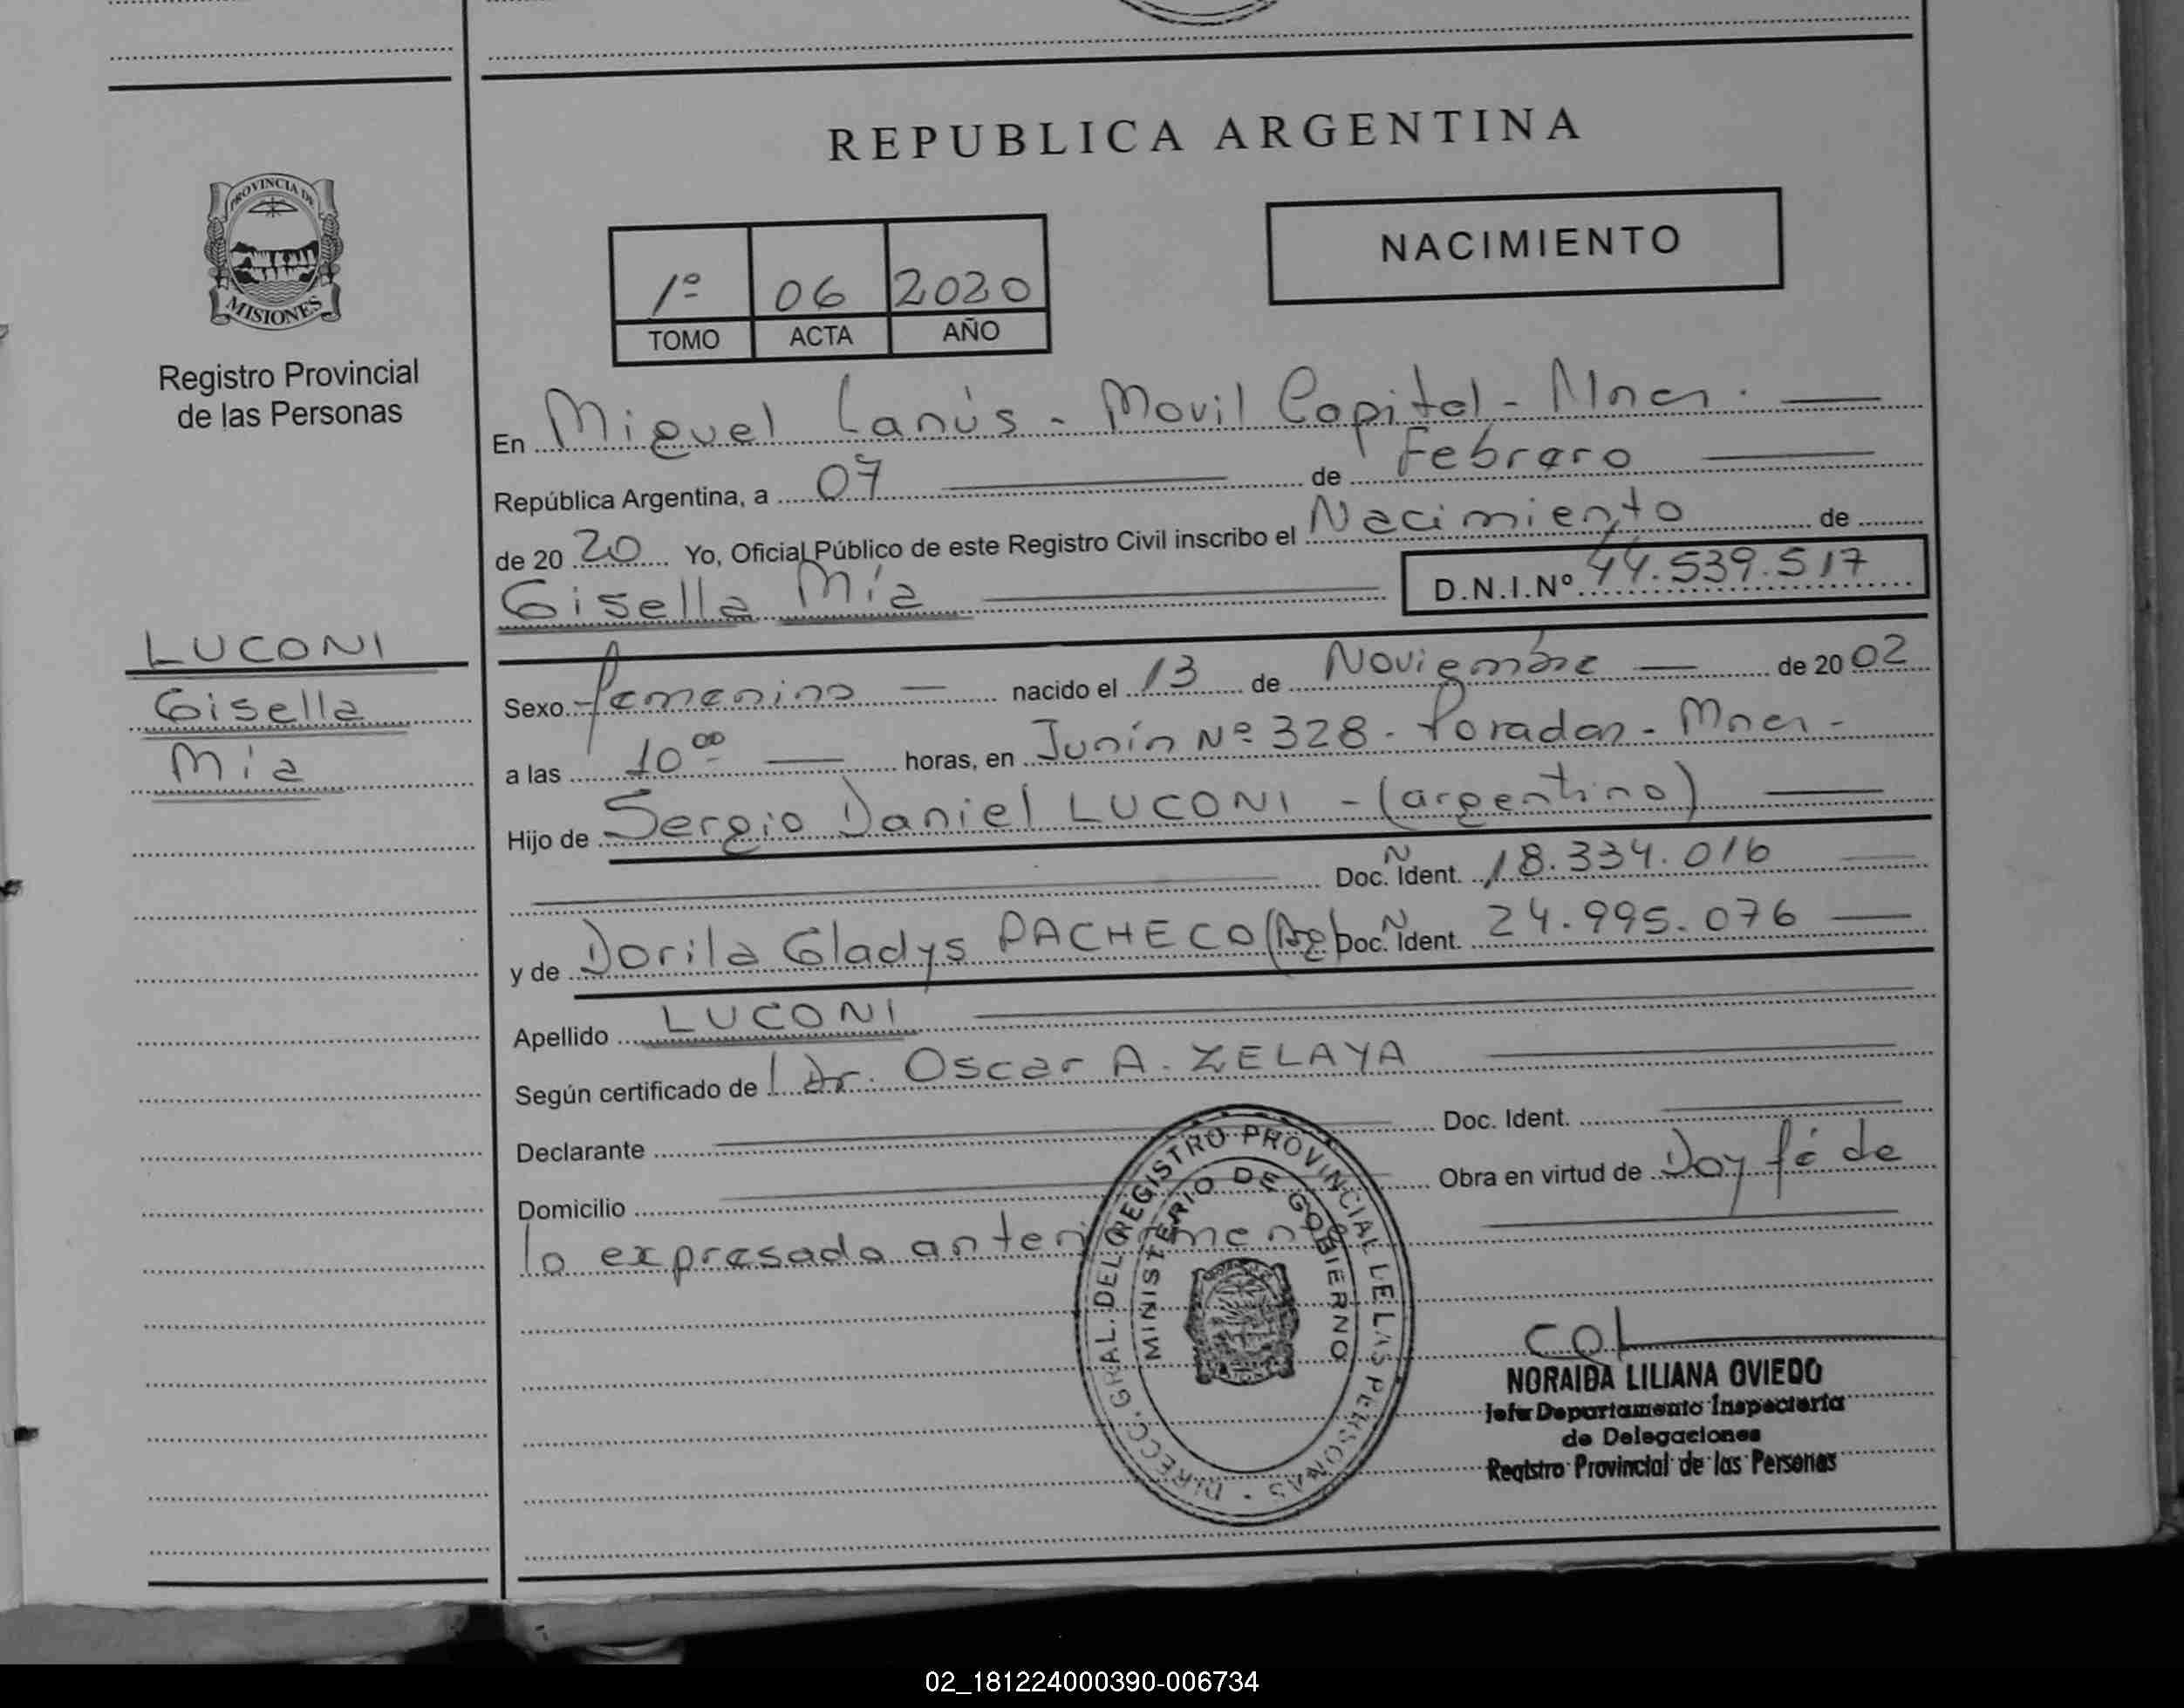 REPUBLICA ARGENTINA
PROVINCIA DE
MISIONES
Registro Provincial
de las Personas
NACIMIENTO
1º 06 2020
TOMO ACTA AÑO
En Miguel Lanús - Movil Capital - Mnes. —
República Argentina, a 07 — de Febrero —
de 20 20 Yo, Oficial Público de este Registro Civil inscribo el Nacimiento de
Gisella Mía — D.N.I.Nº 44.539.517
LUCONI
Gisella
Mía
Sexo femenino — nacido el 13 de Noviembre — de 20 02
a las 10⁰⁰ — horas, en Junín Nº 328 - Posadas - Mnes -
Hijo de Sergio Daniel LUCONI - (argentino) —
Doc. Ident. 18.334.016 —
y de Dorila Gladys PACHECO (Arg) Doc. Ident. 24.995.076 —
Apellido LUCONI —
Según certificado de Dr. Oscar A. ZELAYA —
Declarante — Doc. Ident. —
Domicilio — Obra en virtud de Doy fé de
lo expresado anteriormente —
DIRECC. GRAL. DEL REGISTRO PROVINCIAL DE LAS PERSONAS
MINISTERIO DE GOBIERNO
NORAIDA LILIANA OVIEDO
Jefe Departamento Inspectoría
de Delegaciones
Registro Provincial de las Personas
02_181224000390-006734